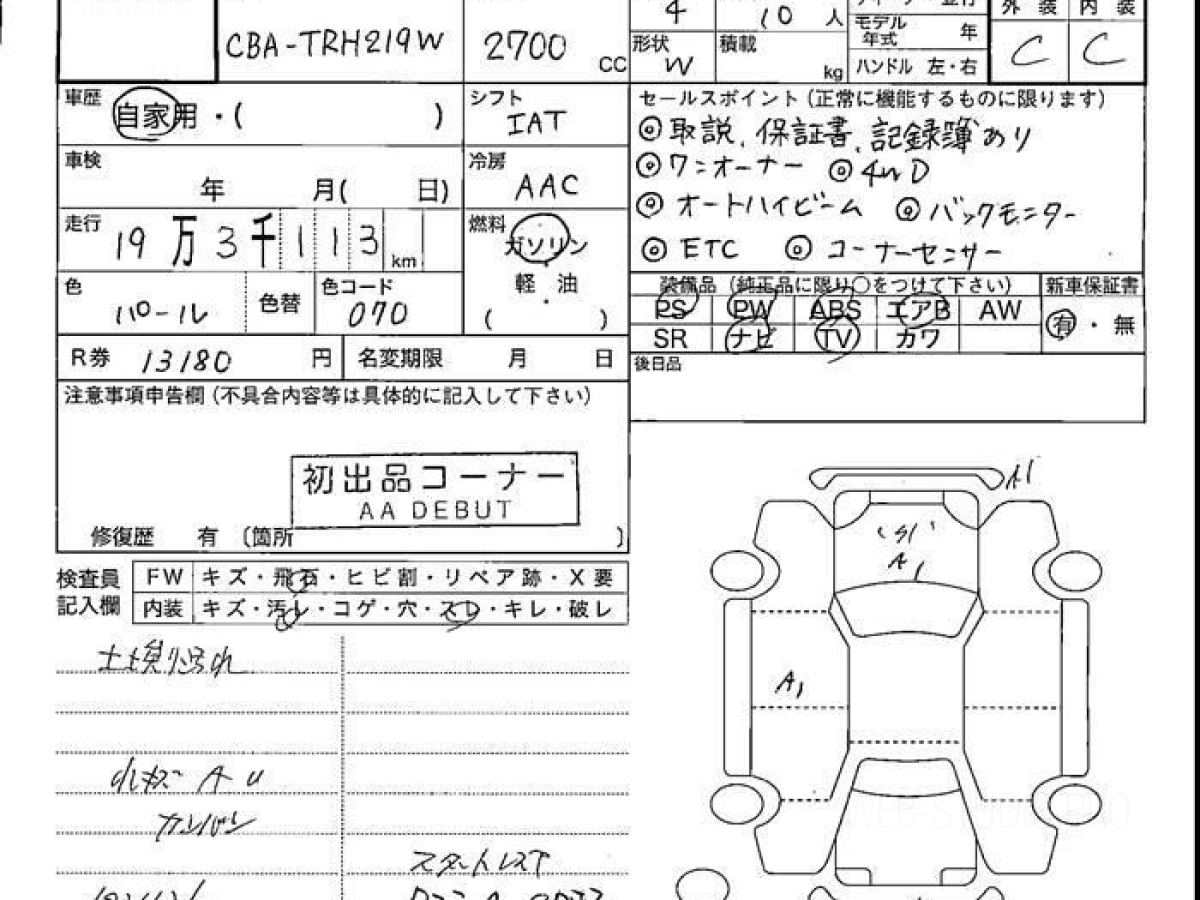 4
10 人
モデル
年式
年
外装
内装
CBA-TRH219W
2700 CC
形状
W
積載
kg
ハンドル 左・右
C
C
車歴
自家用・( )
シフト
IAT
セールスポイント(正常に機能するものに限ります)
◎取説、保証書、記録簿あり
◎ワンオーナー ◎4WD
◎オートハイビーム ◎バックモニター
◎ETC ◎コーナーセンサー
車検
年 月( 日)
冷房
AAC
走行
19万3千113 km
燃料
ガソリン
・
軽 油
・
( )
色
パール
色替
色コード
070
装備品(純正品に限り○をつけて下さい)
新車保証書
PS PW ABS エアB AW
有・無
SR ナビ TV カワ
R券 13180 円
名変期限 月 日
後日品
注意事項申告欄(不具合内容等は具体的に記入して下さい)
初出品コーナー
AA DEBUT
修復歴 有 〔箇所 〕
検査員
記入欄
FW キズ・飛石・ヒビ割・リペア跡・X要
内装 キズ・汚レ・コゲ・穴・スレ・キレ・破レ
A1
A1
A1
スタートレスT